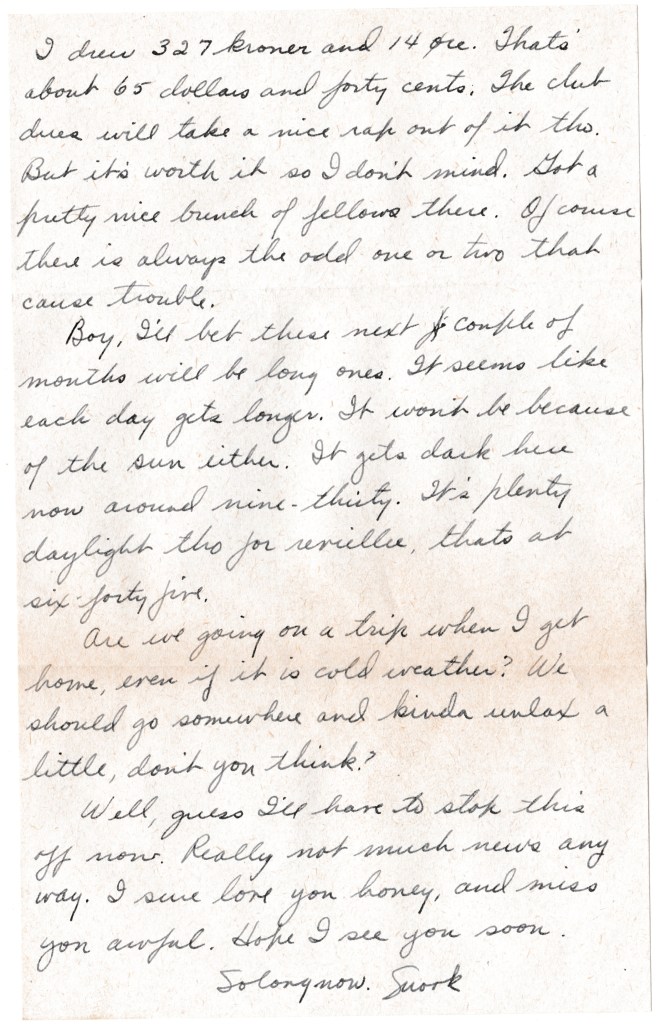 I drew 327 kroner and 14 øre. That's
about 65 dollars and forty cents. The club
dues will take a nice rap out of it tho.
But it's worth it so I don't mind. Got a
pretty nice bunch of fellows there. Of course
there is always the odd one or two that
cause trouble.
Boy, I'll bet these next couple of
months will be long ones. It seems like
each day gets longer. It won't be because
of the sun either. It gets dark here
now around nine-thirty. It's plenty
daylight tho for reveillee, thats at
six-forty five.
Are we going on a trip when I get
home, even if it is cold weather? We
should go somewhere and kinda unlax a
little, don't you think?
Well, guess I'll have to stop this
off now. Really not much news any
way. I sure love you honey, and miss
you awful. Hope I see you soon.
So long now. Snork